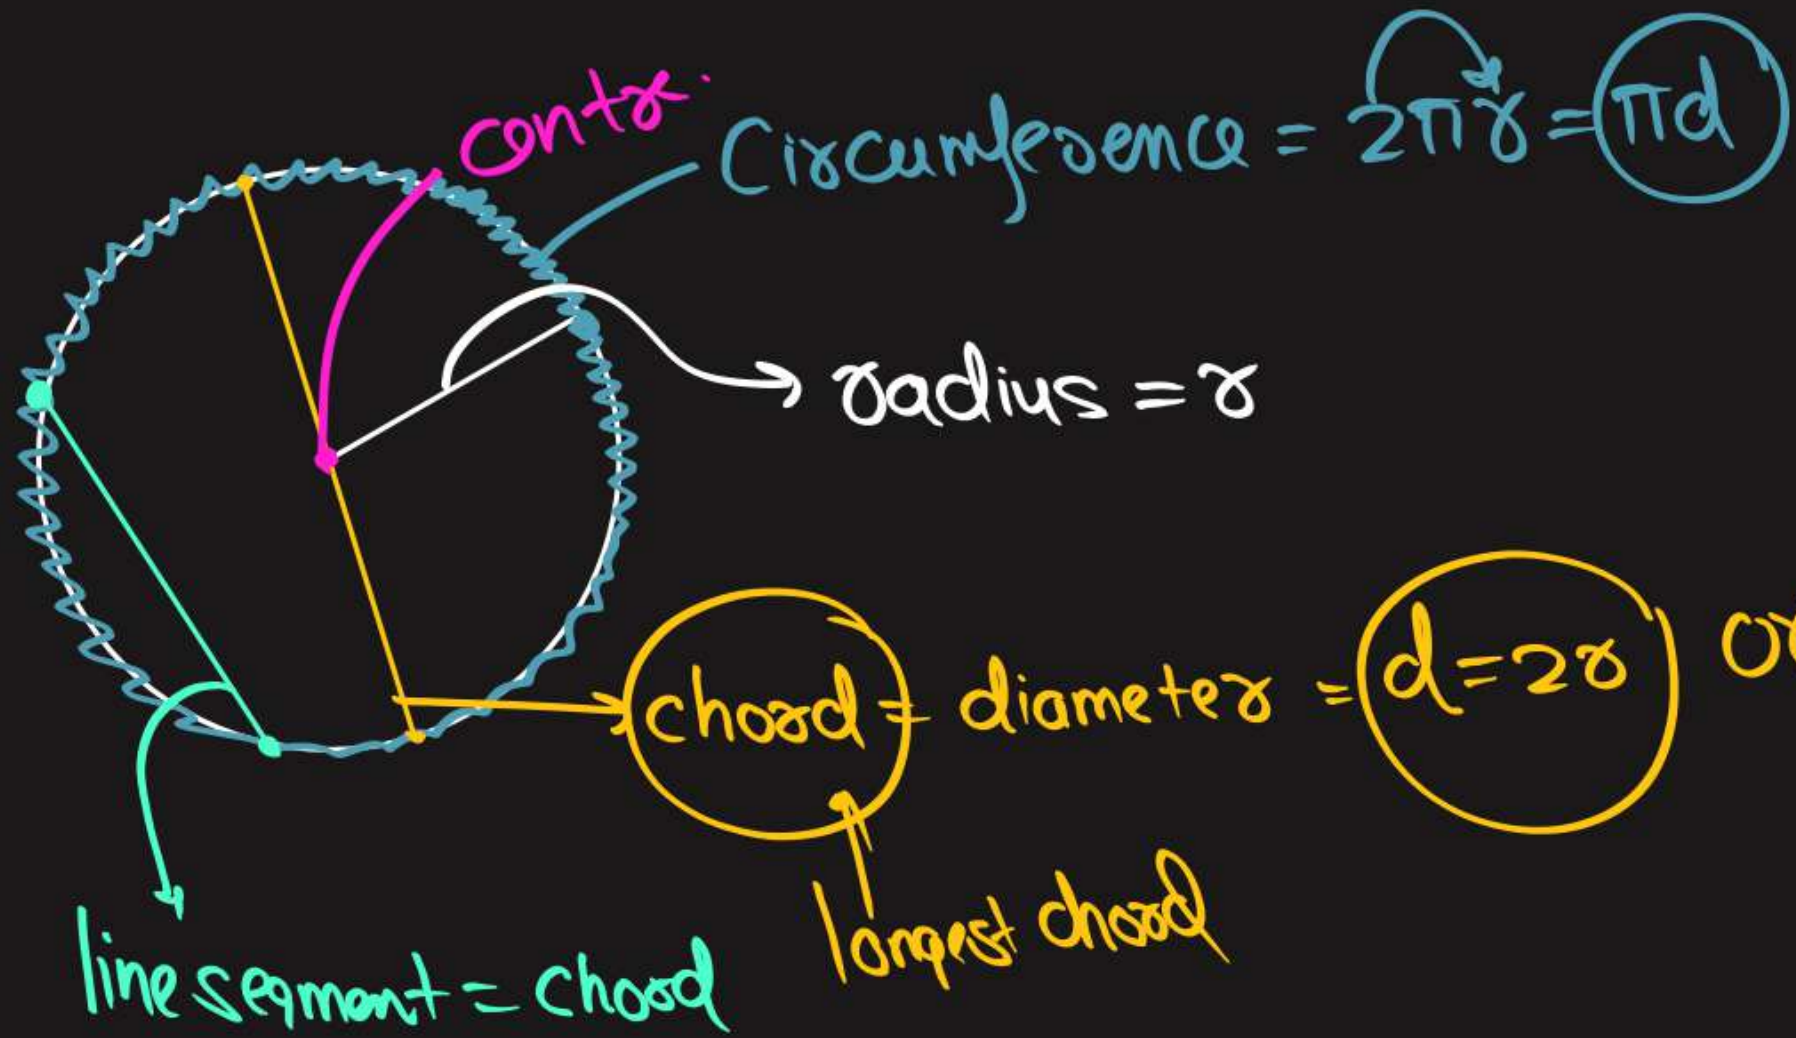 centr.
Circumference = 2πr = πd
radius = r
chord = diameter = d=2r or
longest chord
line segment = chord